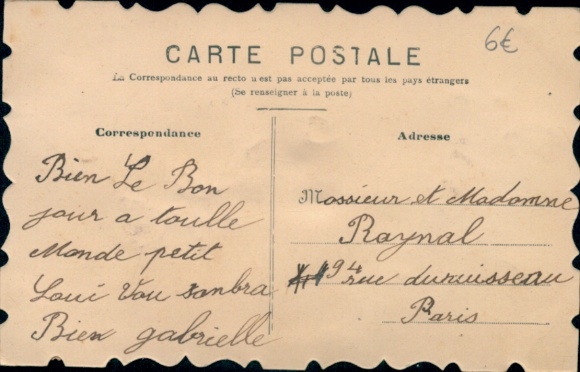 6€
CARTE POSTALE
La Correspondance au recto n'est pas acceptée par tous les pays étrangers
(Se renseigner à la poste)
Correspondance
Adresse
Bien Le Bon
jour a toulle
Monde petit
Loui Vou sonbra
Bien gabrielle
Mossieur et Madamne
Raynal
94 rue duruisseau
Paris